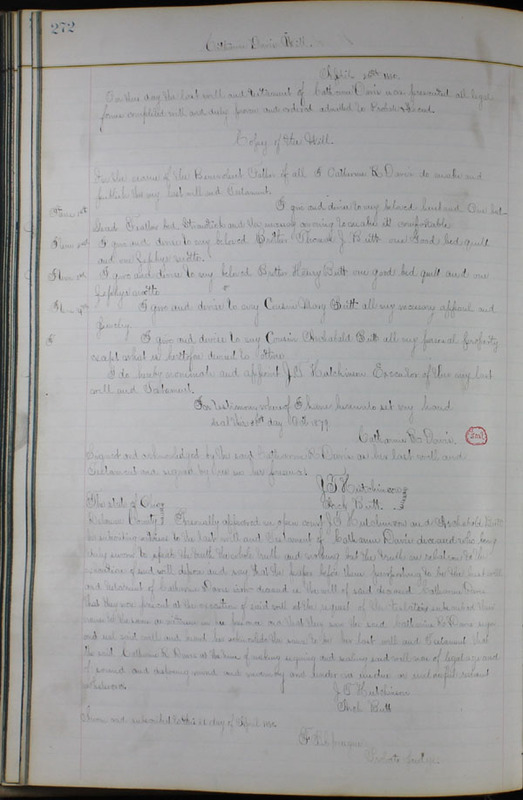 272
Catharine Davis Will.
April 26th 1880.
On this day the last will and testament of Catharine Davis was presented all legal
forms complied with and duly proven and ordered admitted to Probate & Record.
Copy of the Will.
In the name of the Benevolent Father of all I Catharine R Davis do make and
publish this my last will and testament.
Item 1st I give and devise to my beloved husband One bed
stead Feather bed and the necessary covering to make it comfortable
Item 2nd I give and devise to my beloved Brother Thomas J. Britt one good bed quilt
and one Zephyr
Item 3rd I give and devise to my beloved Brother Henry Britt one good bed quilt and one
Zephyr
Item 4th I give and devise to my Cousin Mary Britt all my wearing apparel and
jewelry.
5 I give and devise to my Cousin Archabald Britt all my personal property
except what is before devised to others
I do hereby nominate and appoint J. T. Hutchinson Executor of this my last
will and testament.
In testimony whereof I have hereunto set my hand
and seal this day Oct 1879.
Catharine R Davis. Seal
Signed and acknowledged by the said Catharine R Davis as her last will and
testament and signed by us in her presence.
J T Hutchinson
Arch Britt
The State of Ohio
County Personally appeared in open court J T Hutchinson and Archabald Britt
subscribing witness to the last will and testament of Catharine Davis deceased who being
duly sworn to speak the truth the whole truth and nothing but the truth in relation to the
execution of said will depose and say that the paper before them purporting to be the last will
and testament of Catharine Davis is the will of said deceased Catharine Davis
that they were present at the execution of said will at the request of the testatrix subscribed their
names to the same as witnesses in her presence and that they saw the said Catharine R Davis sign
and seal said will and heard her acknowledge the same to be her last will and testament that
the said Catharine R Davis at the time of making signing and sealing said will was of legal age and
of sound and disposing mind and memory and under no undue or unlawful restraint
whatsoever.
J T Hutchinson
Arch Britt
Sworn and subscribed to this 26 day of April 1880
Probate Judge